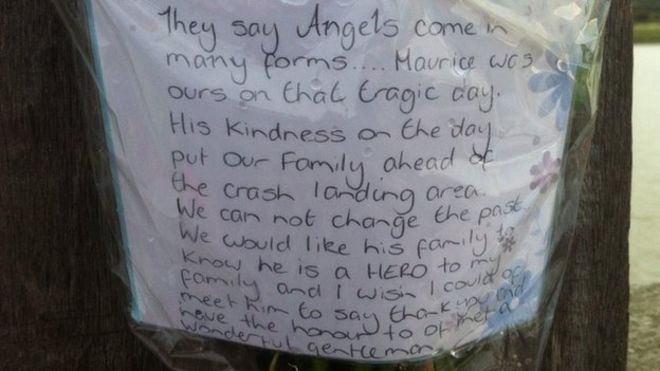 They say Angels come in
many forms.... Maurice was
ours on that tragic day.
His Kindness on the day
put our Family ahead of
the crash landing area.
We can not change the past.
We would like his family to
know he is a HERO to my
family and I wish I could of
meet him to say thankyou and
have the honour to of met a
wonderful gentleman.